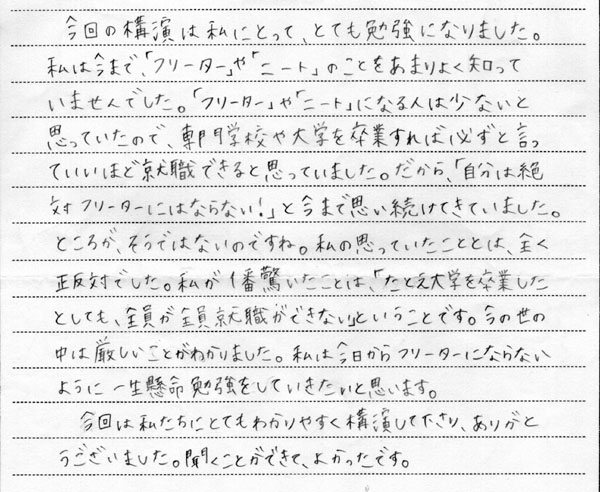 今回の構演は私にとって、とても勉強になりました。
私は今まで、「フリーター」や「ニート」のことをあまりよく知って
いませんでした。「フリーター」や「ニート」になる人は少ないと
思っていたので、専門学校や大学を卒業すれば必ずと言っ
ていいほど就職できると思っていました。だから、「自分は絶
対フリーターにはならない!」と今まで思い続けてきていました。
ところが、そうではないのですね。私の思っていたこととは、全く
正反対でした。私が1番驚いたことは、「たとえ大学を卒業した
としても、全員が全員就職ができない」ということです。今の世の
中は厳しいことがわかりました。私は今日からフリーターにならない
ように一生懸命勉強をしていきたいと思います。
今回は私たちにとてもわかりやすく構演して下さり、ありがと
うございました。聞くことができて、よかったです。